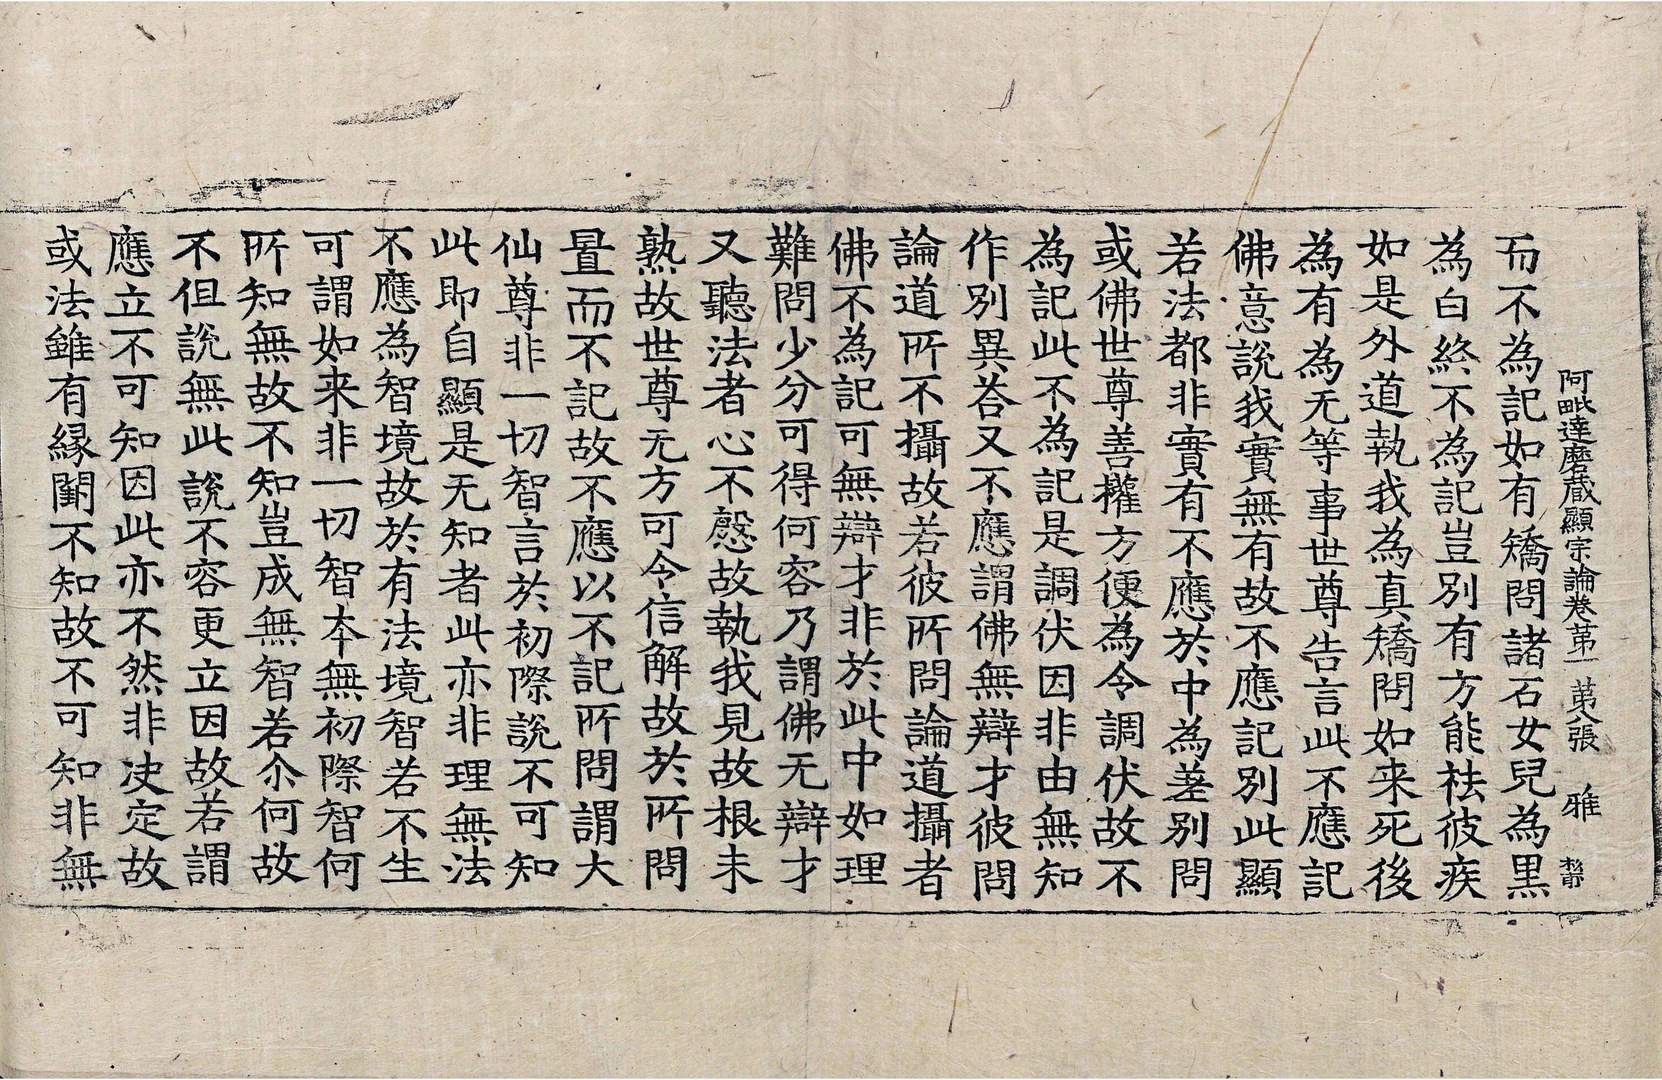 阿毗達磨藏顯宗論卷第一 第八張 雅
而不為記如有矯問諸石女兒為黒
為白終不為記豈別有方能袪彼疾
如是外道執我為真矯問如来死後
為有為无等事世尊告言此不應記
佛意說我實無有故不應記別此顯
若法都非實有不應於中為差別問
或佛世尊善權方便為令調伏故不
為記此不為記是調伏因非由無知
作別異荅又不應謂佛無辯才彼問
論道所不攝故若彼所問論道攝者
佛不為記可無辯才非於此中如理
難問少分可得何容乃謂佛无辯才
又聽法者心不慇故執我見故根未
熟故世尊无方可令信解故於所問
置而不記故不應以不記所問謂大
仙尊非一切智言於初際說不可知
此即自顯是无知者此亦非理無法
不應為智境故於有法境智若不生
可謂如来非一切智本無初際智何
所知無故不知豈成無智若尒何故
不但說無此說不容更立因故若謂
應立不可知因此亦不然非决定故
或法雖有縁闕不知故不可知非無